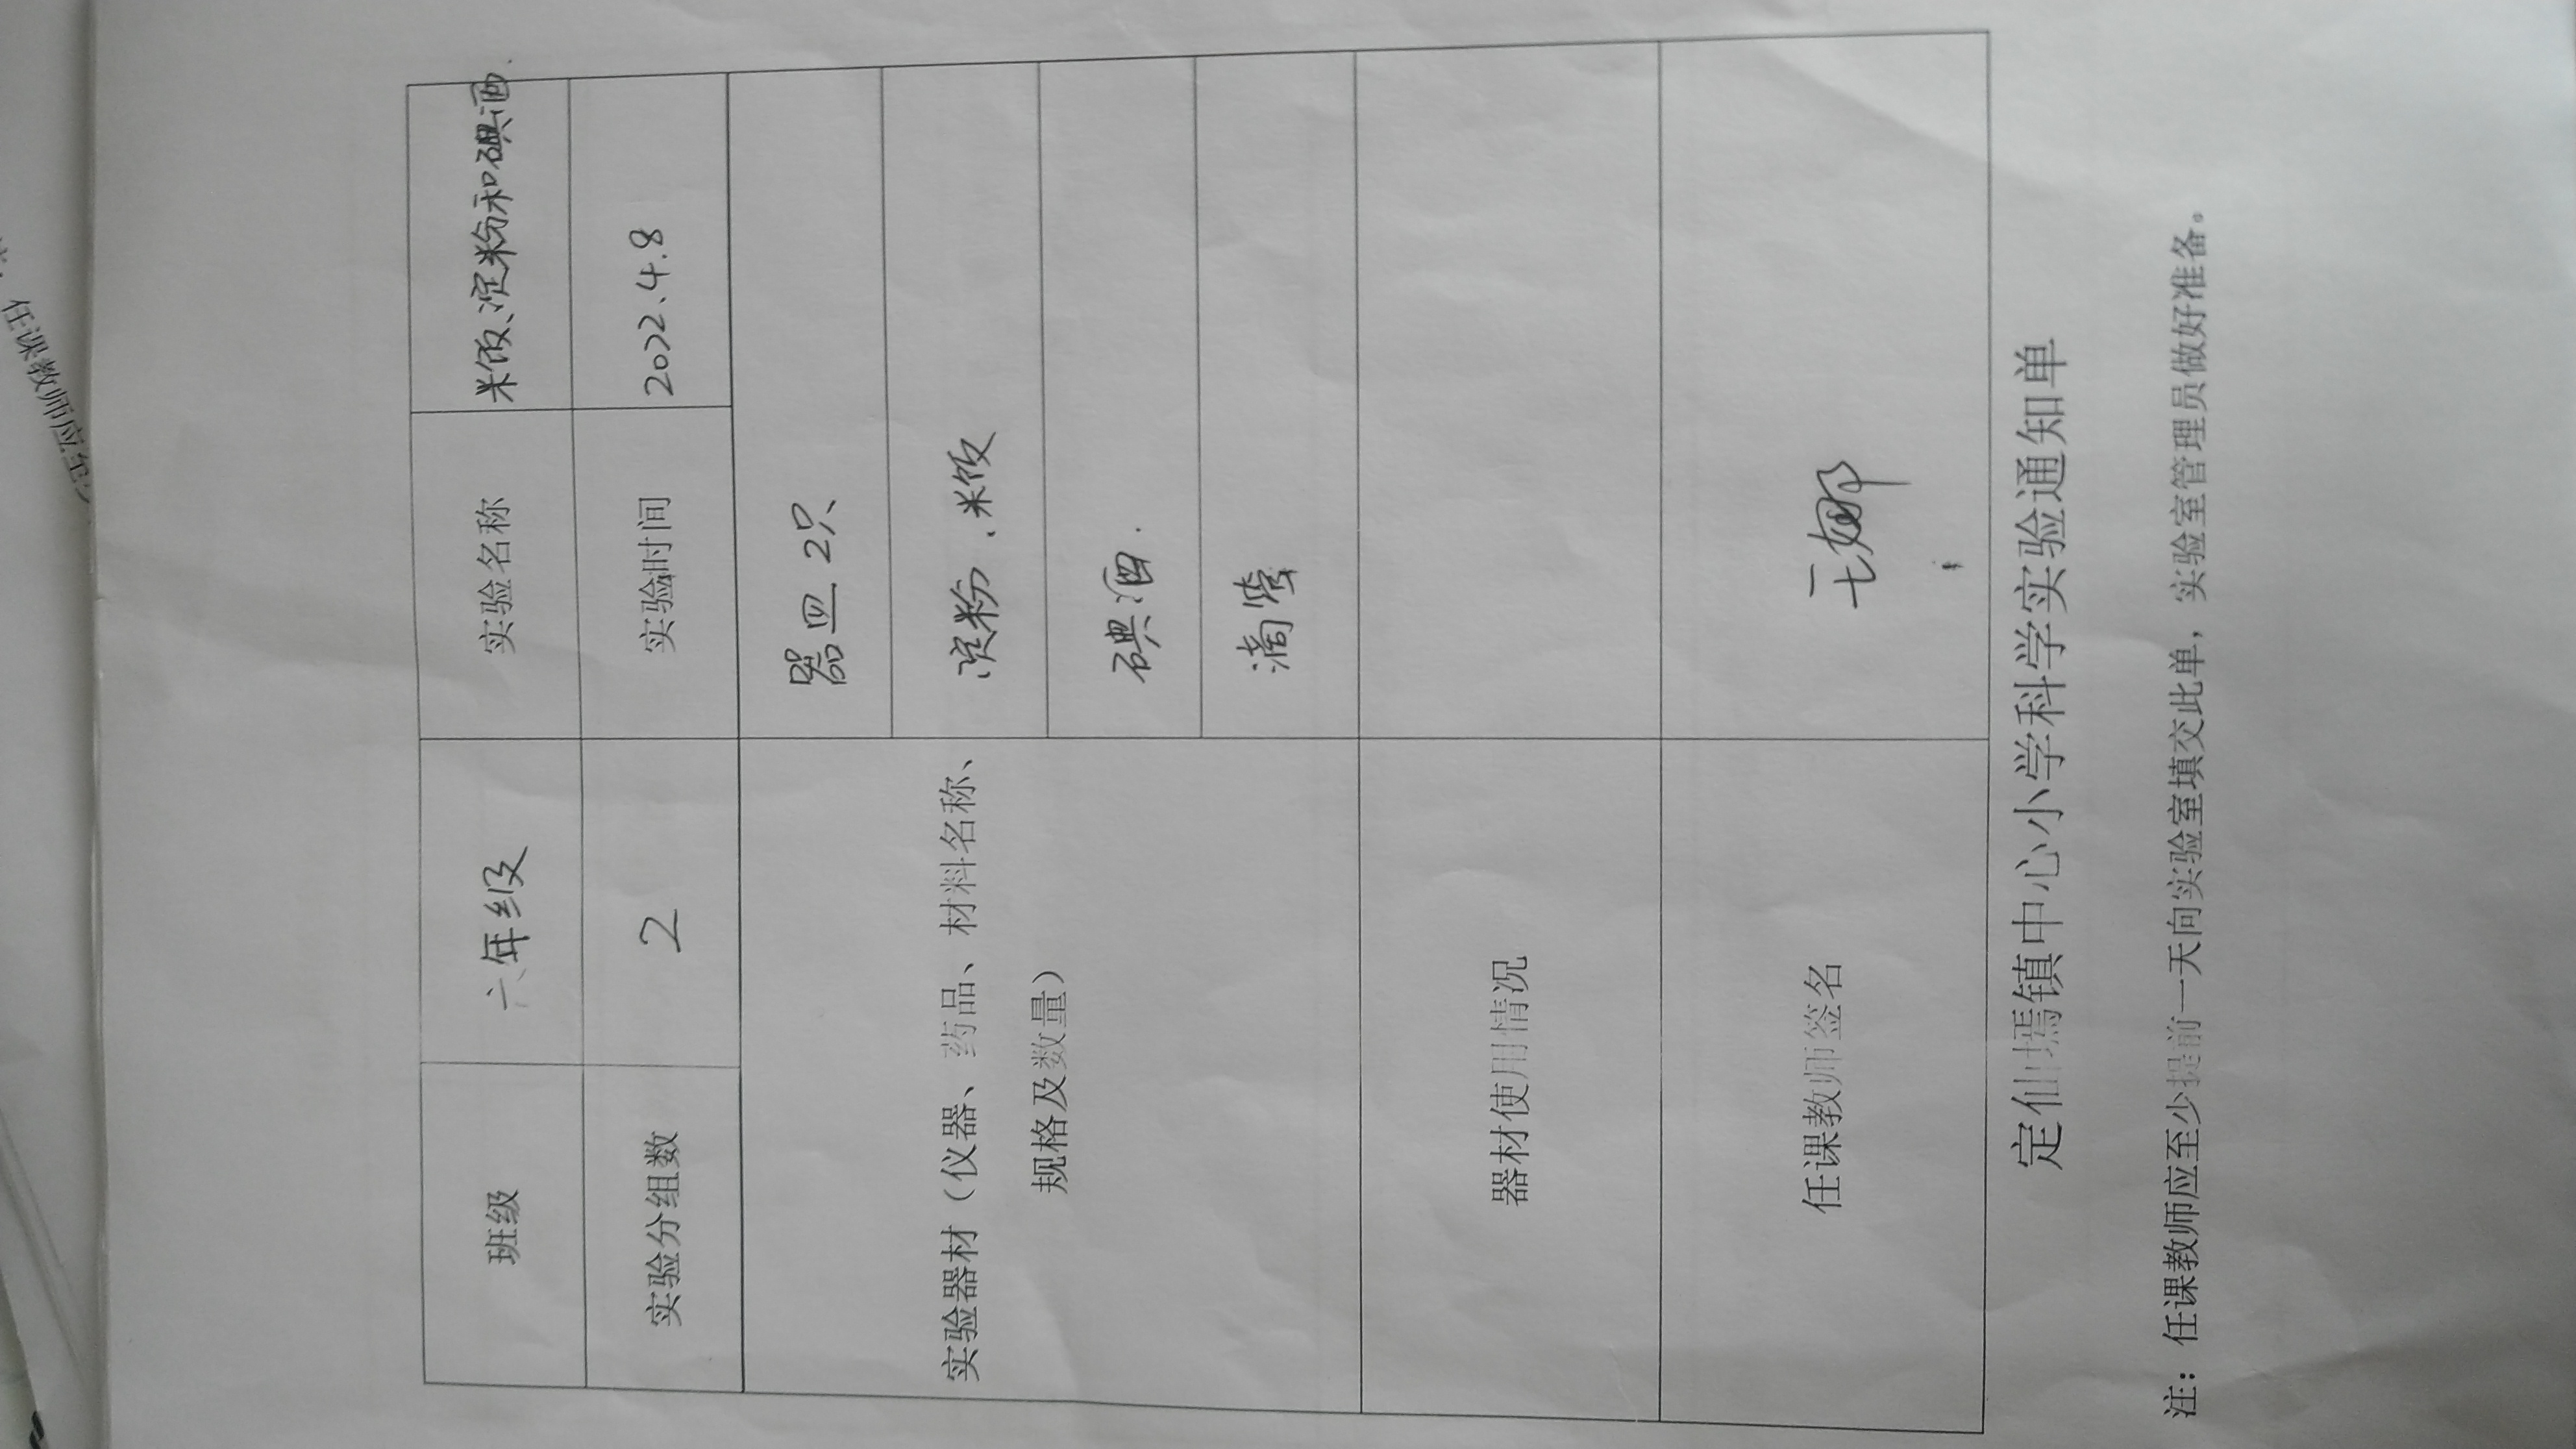 班级 六年级 实验名称 米饭、淀粉和碘酒
实验分组数 2 实验时间 2022.4.8
实验器材（仪器、药品、材料名称、
规格及数量）
器皿 2只
淀粉、米饭
碘酒
滴管
器材使用情况
任课教师签名
定仙墕镇中心小学科学实验通知单
注：任课教师应至少提前一天向实验室填交此单，实验室管理员做好准备。